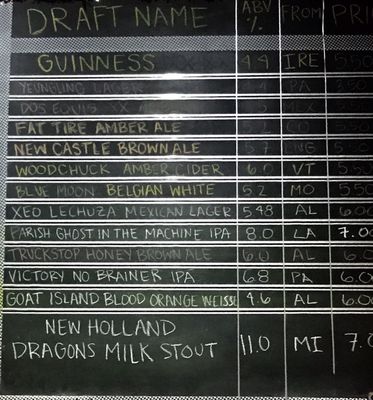 DRAFT NAME ABV % FROM PRI
GUINNESS 4.4 IRE 5.50
YEUNGLING LAGER PA 3.50
DOS EQUIS XX
FAT TIRE AMBER ALE 5.2 CO 5.50
NEW CASTLE BROWN ALE 5.7 ENG 5.50
WOODCHUCK AMBER CIDER 6.0 VT 5.50
BLUE MOON BELGIAN WHITE 5.2 MO 5.50
XEO LECHUZA MEXICAN LAGER 5.48 AL 6.00
PARISH GHOST IN THE MACHINE IPA 8.0 LA 7.00
TRUCKSTOP HONEY BROWN ALE 6.0 AL 6.0
VICTORY NO BRAINER IPA 6.8 PA 6.00
GOAT ISLAND BLOOD ORANGE WEISSE 4.6 AL 6.00
NEW HOLLAND
DRAGONS MILK STOUT 11.0 MI 7.0